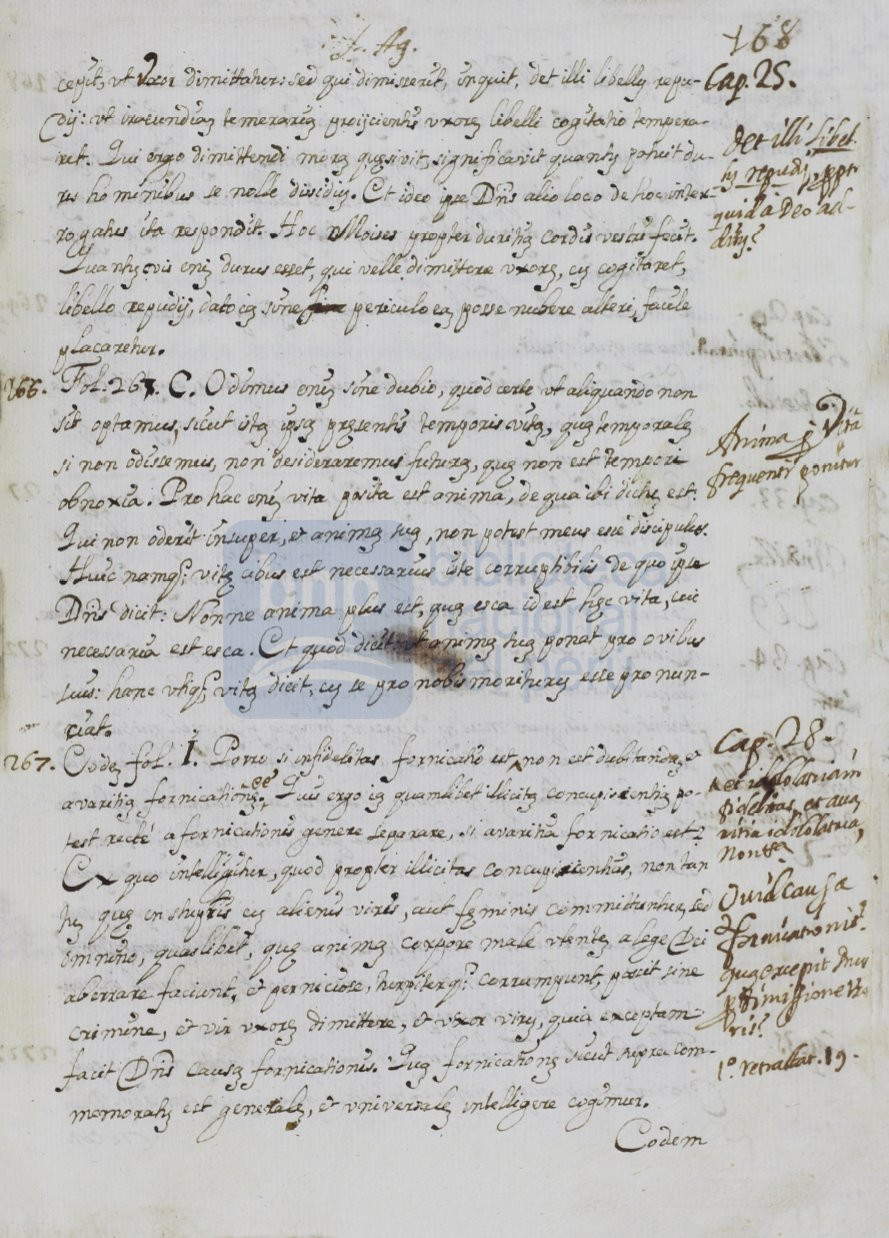 168
cepit, vt Vxor dimittatur: sed qui dimisserit, inquit, det illi libellũ repu-
dij: vt iracundiaȝ temerariaȝ proijcientis vxorȝ libelli cogitatio tempera-
ret. Qui ergo dimittendi morȝ quȩsivit, significavit quantȝ potuit du-
ris hominibus se nolle dissidiȝ. Et ideo ipse Dñs alio loco de hoc inter-
rogatus ita respondit. Hoc Moises propter duritiȝ cordis vestri fecit.
Quantȝ ovis eniȝ durus esset, qui velle dimittere vxorȝ, cȝ cogitaret,
libello repudij, dato iȝ sine periculo eȝ posse nubere alteri, facile
placaretur.
Cap. 25.
Det illi Libel-
lȝ repudij, ppt
quid a Deo ad-
ditȝ?
266. Fol. 267. C. Odimus eniȝ sine dubio, quod certe vt aliquando non
sit optamus, sicut istȝ ipsȝ prȩsentis temporis vitȝ, quȩ temporalȝ
si non odissemus, non desideraremus futurȝ, quȩ non est tempori
obnoxia. Pro hac eniȝ vita posita est anima, de qua ibi dictȝ est:
Qui non oderit insuper, et animȝ suȝ, non potest meus esse discipulus.
Huic namq; vitȩ cibus est necessarius iste corruptibilis de quo ipse
Dñs dicit: Nonne anima plus est, quȝ esca id est hȩc vita, cui
necessaria est esca. Et quod dicit vt animȝ suȝ ponat pro ovibus
suis: hanc vtiq; vitȝ dicit, cȝ se pro nobis moriturȝ esse pronun-
ciat.
Anima p Vita
frequentr ponitur
267. Eodȝ fol. I. Porro si infidelitas fornicatio est, non est dubitandȝ, et
avaritiȝ fornicationȝ eȩ. Quis ergo iȝ quamlibet illicitȝ concupiscentiȝ po-
test rectè a fornicationis genere separare, si avaritia fornicatio est?
Ex quo intelligitur, quod propter illicitas concupiscentias, non tan
tȝ quȩ in stupris cȝ alienis viris, aut fȩminis committuntur, sed
omnino, quaslibet, quȩ animȝ corpore male vtentȝ a lege Dei
aberrare faciunt, et perniciose, turpiterq; corrumpunt, possit sine
crimine, et vir vxorȝ dimittere, et vxor virȝ, quia exceptam
facit Dñs causȝ fornicationis. Quȝ fornicationȝ sicut supra com-
memoratȝ est generalȝ, et vniversalȝ intelligere cogimur.
Cap. 28.
et idololatria in
fidelitas, et ava
ritia idololatria,
Quid causa
fornicationis?
quȩ excepit Dñs
dimissione vxo
ris?
1º retractat. 19.
Eodem